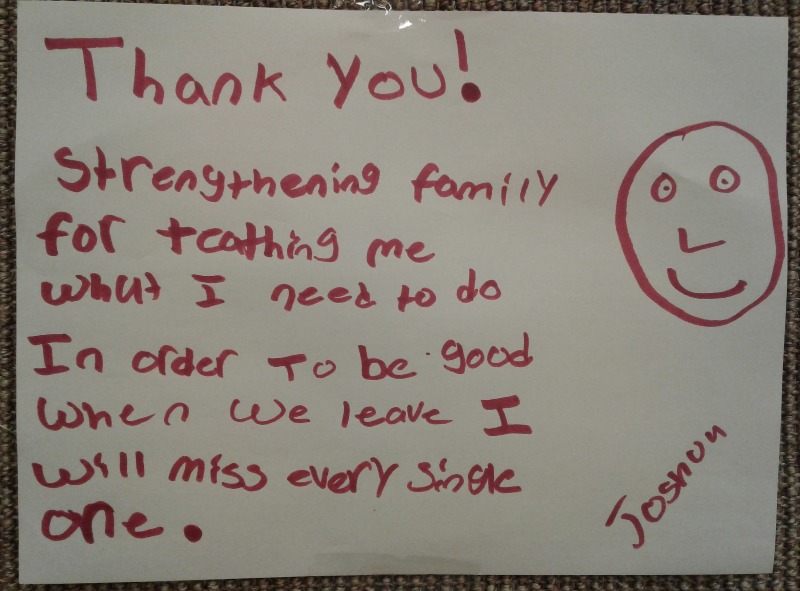 Thank You!
Strengthening family
for teathing me
what I need to do
In order To be good
when we leave I
will miss every single
one.
Joshua